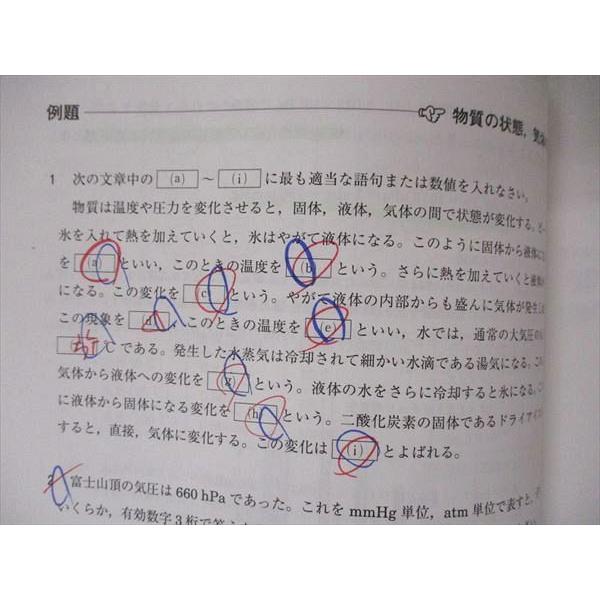 例題 物質の状態,
1 次の文章中の (a) ~ (i) に最も適当な語句または数値を入れなさい。
物質は温度や圧力を変化させると,固体,液体,気体の間で状態が変化する。
氷を入れて熱を加えていくと,氷はやがて液体になる。このように固体から液体に
を (a) といい,このときの温度を (b) という。さらに熱を加えていくと液体
になる。この変化を (c) という。やがて液体の内部からも盛んに気体が発生
この現象を (d) ,このときの温度を (e) といい,水では,通常の大気圧
℃である。発生した水蒸気は冷却されて細かい水滴である湯気になる。
気体から液体への変化を (g) という。液体の水をさらに冷却すると氷になる。
に液体から固体になる変化を (h) という。二酸化炭素の固体であるドライアイ
すると,直接,気体に変化する。この変化は (i) とよばれる。
2 富士山頂の気圧は660 hPaであった。これをmmHg単位,atm単位で表すと,
いくらか,有効数字3桁で答え